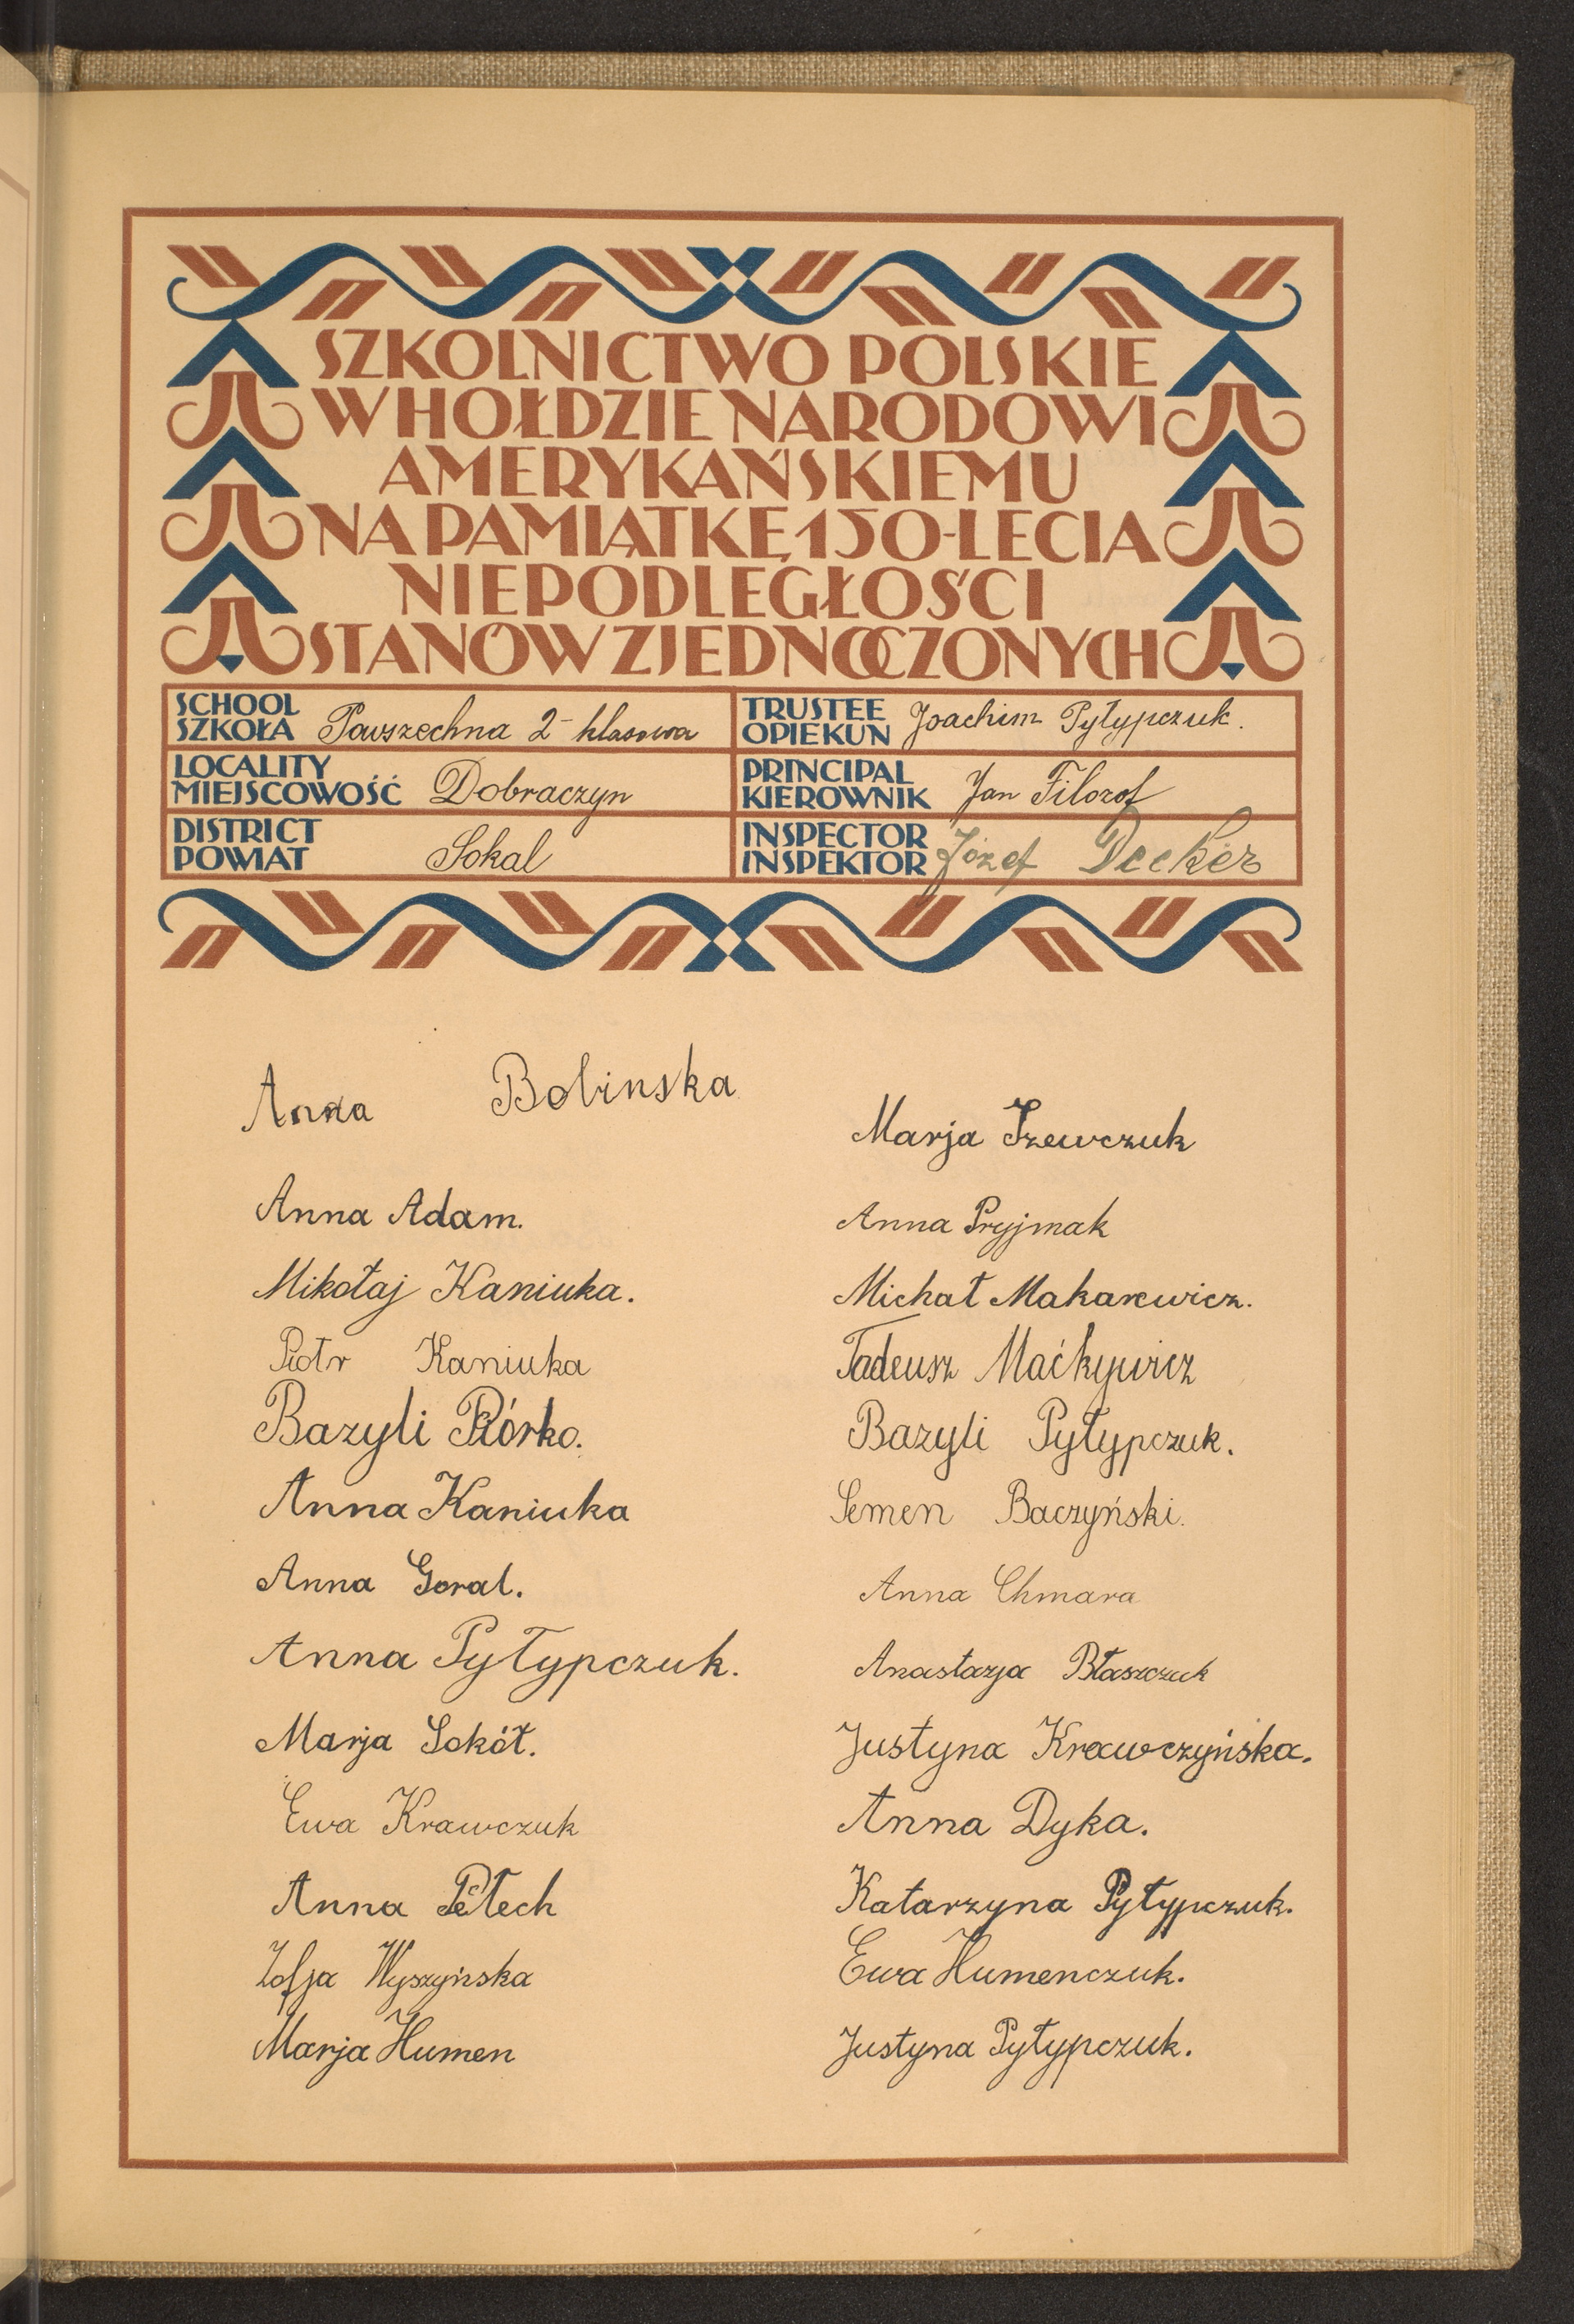 SZKOLNICTWO POLSKIE
W HOŁDZIE NARODOWI
AMERYKAŃSKIEMU
NA PAMIĄTKĘ 150-LECIA
NIEPODLEGŁOŚCI
STANÓW ZJEDNOCZONYCH
SCHOOL
SZKOŁA Powszechna 2-klasowa
LOCALITY
MIEJSCOWOŚĆ Dobraczyn
DISTRICT
POWIAT Sokal
TRUSTEE
OPIEKUN Joachim Pyłypczuk.
PRINCIPAL
KIEROWNIK Jan Filozof
INSPECTOR
INSPEKTOR Józef Decker
Anna Bobinska
Anna Adam.
Mikołaj Kaniuka.
Piotr Kaniuka
Bazyli Piórko.
Anna Kaniuka
Anna Goral.
Anna Pyłypczuk.
Marja Sokół.
Ewa Krawczuk
Anna Pełech
Zofja Wyszyńska
Marja Humen
Marja Szewczuk
Anna Pryjmak
Michał Makarewicz.
Tadeusz Maćkywicz
Bazyli Pyłypczuk.
Semen Baczyński.
Anna Chmara
Anastazja Błaszczuk
Justyna Krawczyńska.
Anna Dyka.
Katarzyna Pyłypczuk.
Ewa Humenczuk.
Justyna Pyłypczuk.